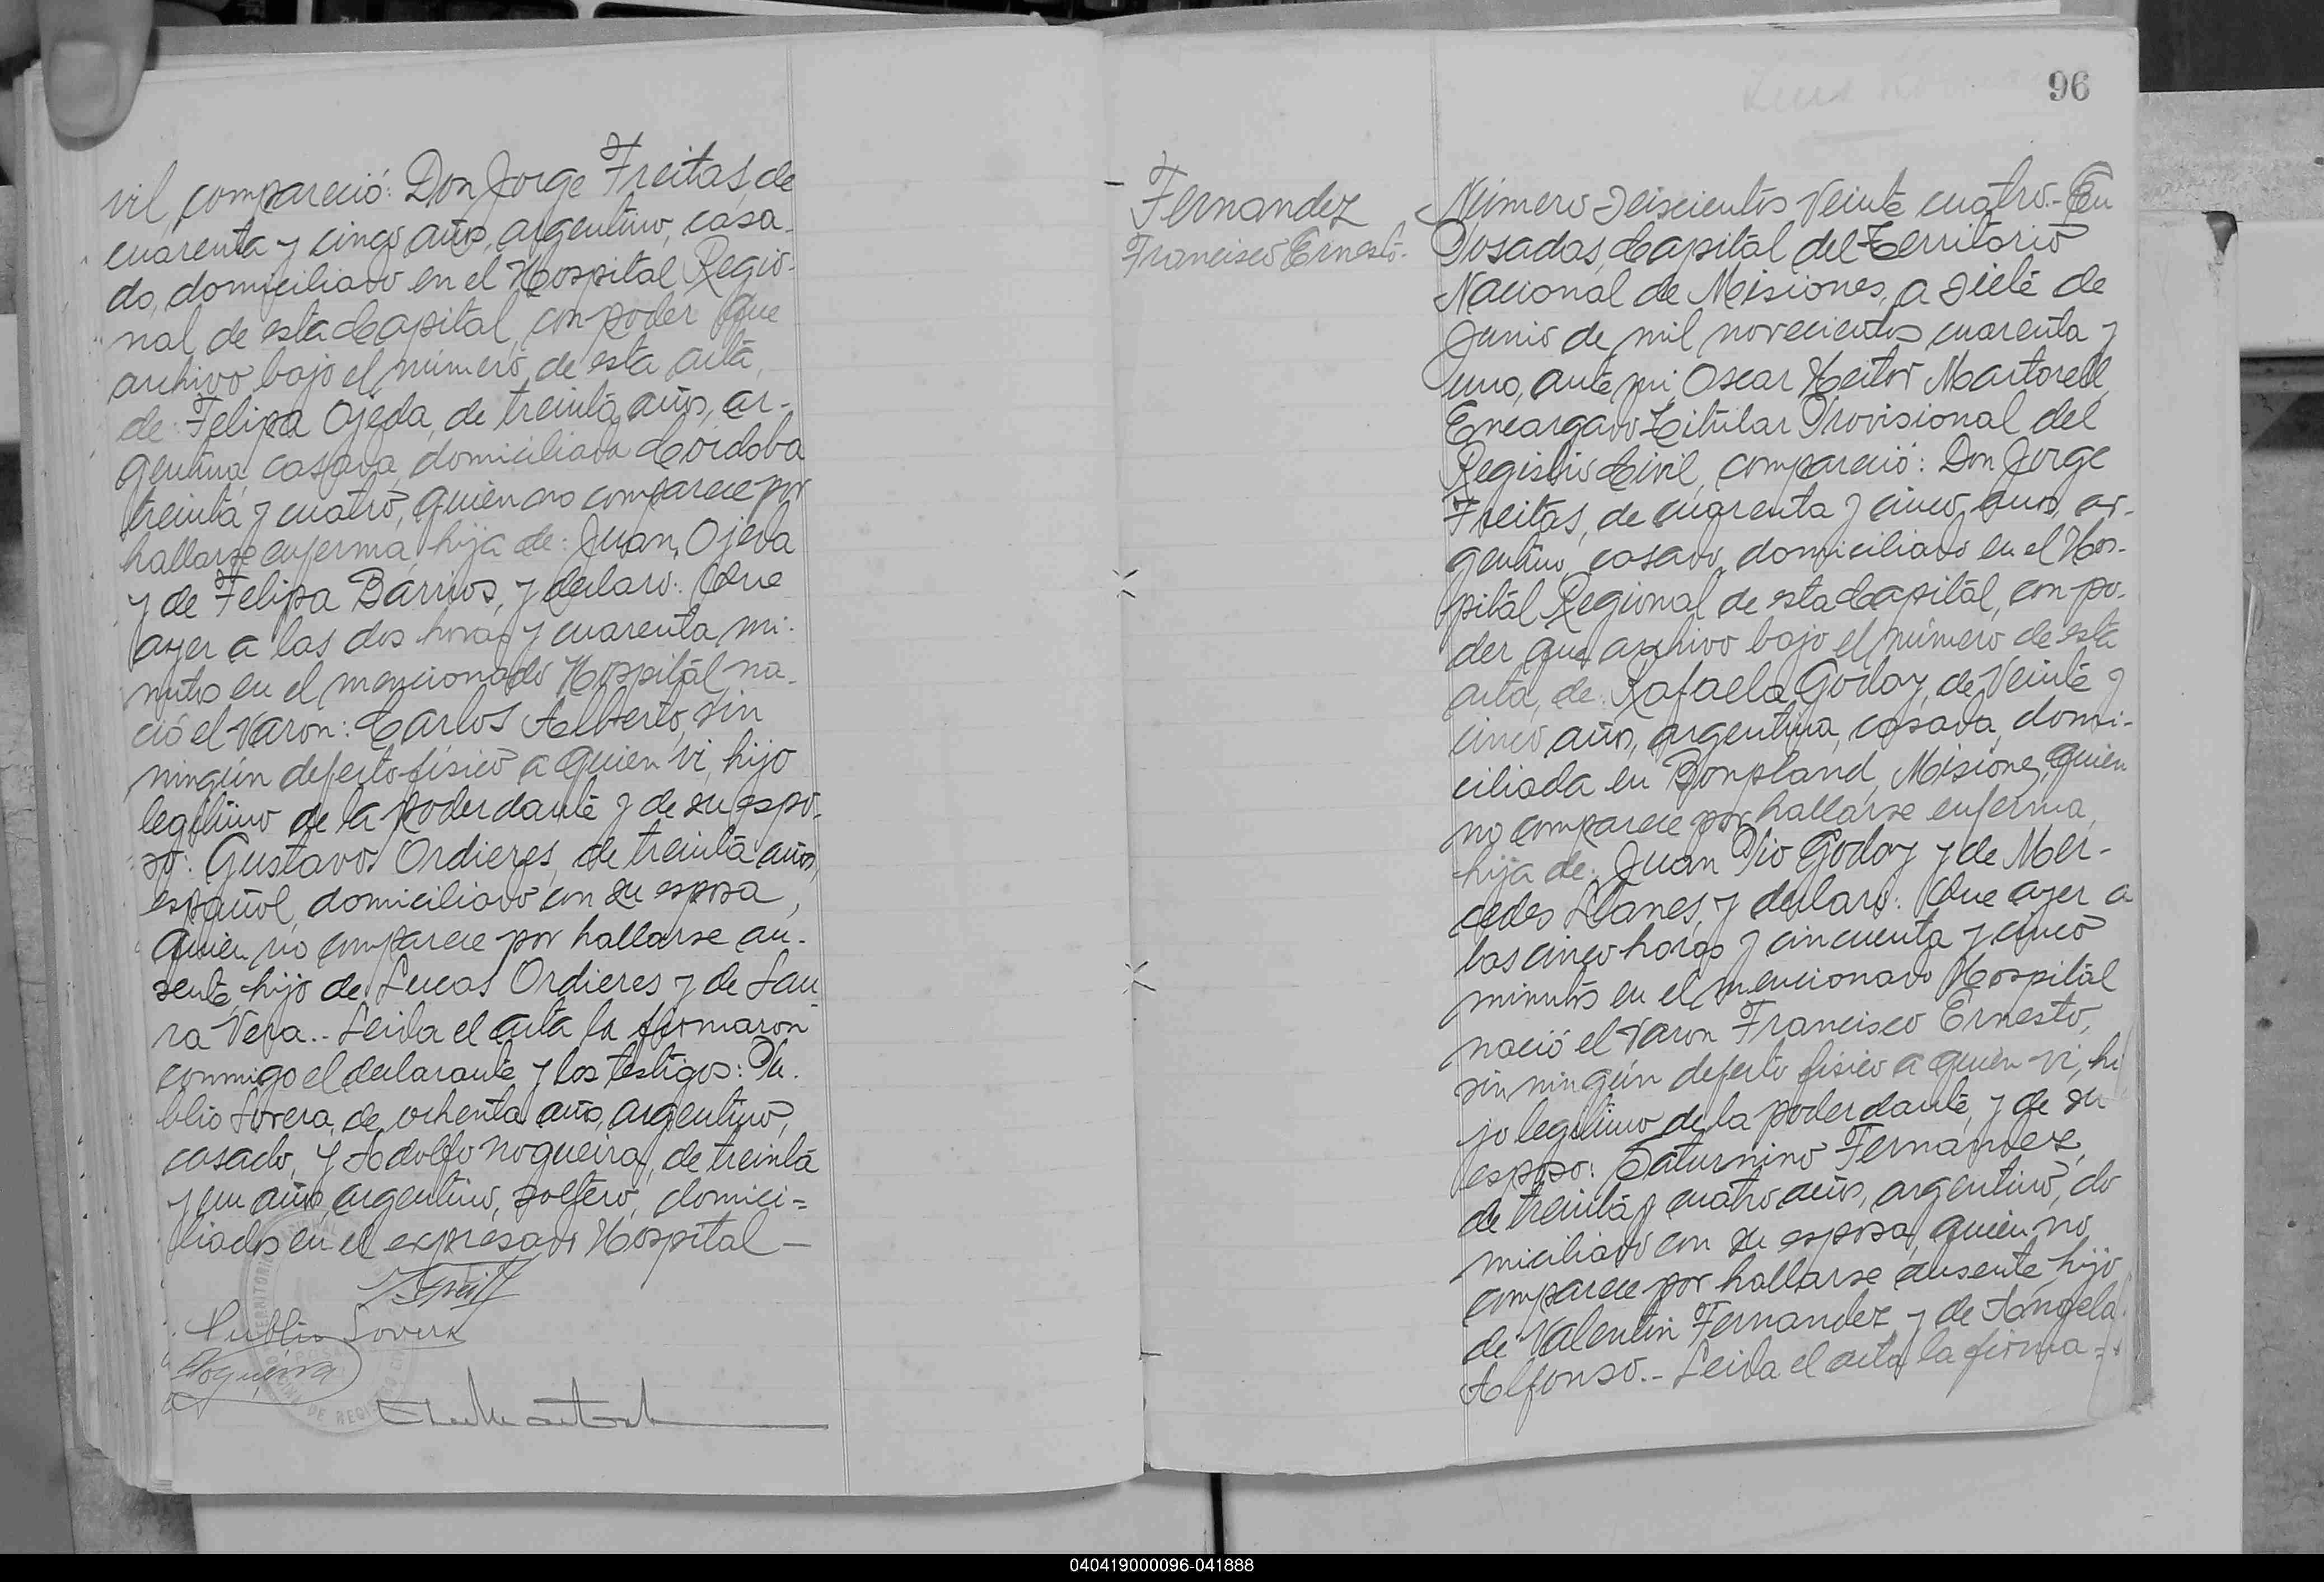 vil, compareció: Don Jorge Freitas, de
cuarenta y cinco años, argentino, casa-
do, domiciliado en el Hospital Regio-
nal de esta Capital, con poder que
archivo bajo el número de esta acta,
de: Felipa Ojeda, de treinta años, ar-
gentina, casada, domiciliada Córdoba
treinta y cuatro, quien no comparece por
hallarse enferma, hija de: Juan Ojeda
y de Felipa Barrios, y declaro: Que
ayer a las dos horas y cuarenta mi-
nutos en el mencionado Hospital na-
ció el Varon: Carlos Alberto, sin
ningún defecto físico a quien vi, hijo
legítimo de la poderdante y de su espo-
so: Gustavo Ordieres, de treinta años,
español, domiciliado con su esposa,
quien no comparece por hallarse au-
sente, hijo de Lucas Ordieres y de Lau
ra Vera.- Leida el acta la firmaron
conmigo el declarante y los testigos: Pu-
blio Lovera, de ochenta años, argentino,
casado, y Adolfo Nogueira, de treinta
y un años, argentino, soltero, domici=
liados en el expresado Hospital -
Publio Lovera
Nogueira
96
Fernandez
Francisco Ernesto.-
Número Seiscientos Veinte cuatro.- En
Posadas, Capital del Territorio
Nacional de Misiones, a siete de
Junio de mil novecientos cuarenta y
uno, ante mi Oscar Hector Martorell,
Encargado Titular Provisional del
Registro Civil, compareció: Don Jorge
Freitas, de cuarenta y cinco años, ar-
gentino, casado, domiciliado en el Hos-
pital Regional de esta Capital, con po-
der que archivo bajo el número de esta
acta, de: Rafaela Godoy, de Veinte y
cinco años, argentina, casada, domi-
ciliada en Bonpland, Misiones, quien
no comparece por hallarse enferma,
hija de: Juan Pio Godoy y de Mer-
cedes Llanes, y declaro: Que ayer a
las cinco horas y cincuenta y cinco
minutos en el mencionado Hospital
nació el Varon Francisco Ernesto,
sin ningún defecto físico a quien vi, hi
jo legítimo de la poderdante, y de su
esposo: Saturnino Fernandez,
de treinta y cuatro años, argentino, do
miciliado con su esposa, quien no
comparece por hallarse ausente, hijo
de Valentin Fernandez y de Angela
Alfonso.- Leida el acta la firma=
040419000096-041888